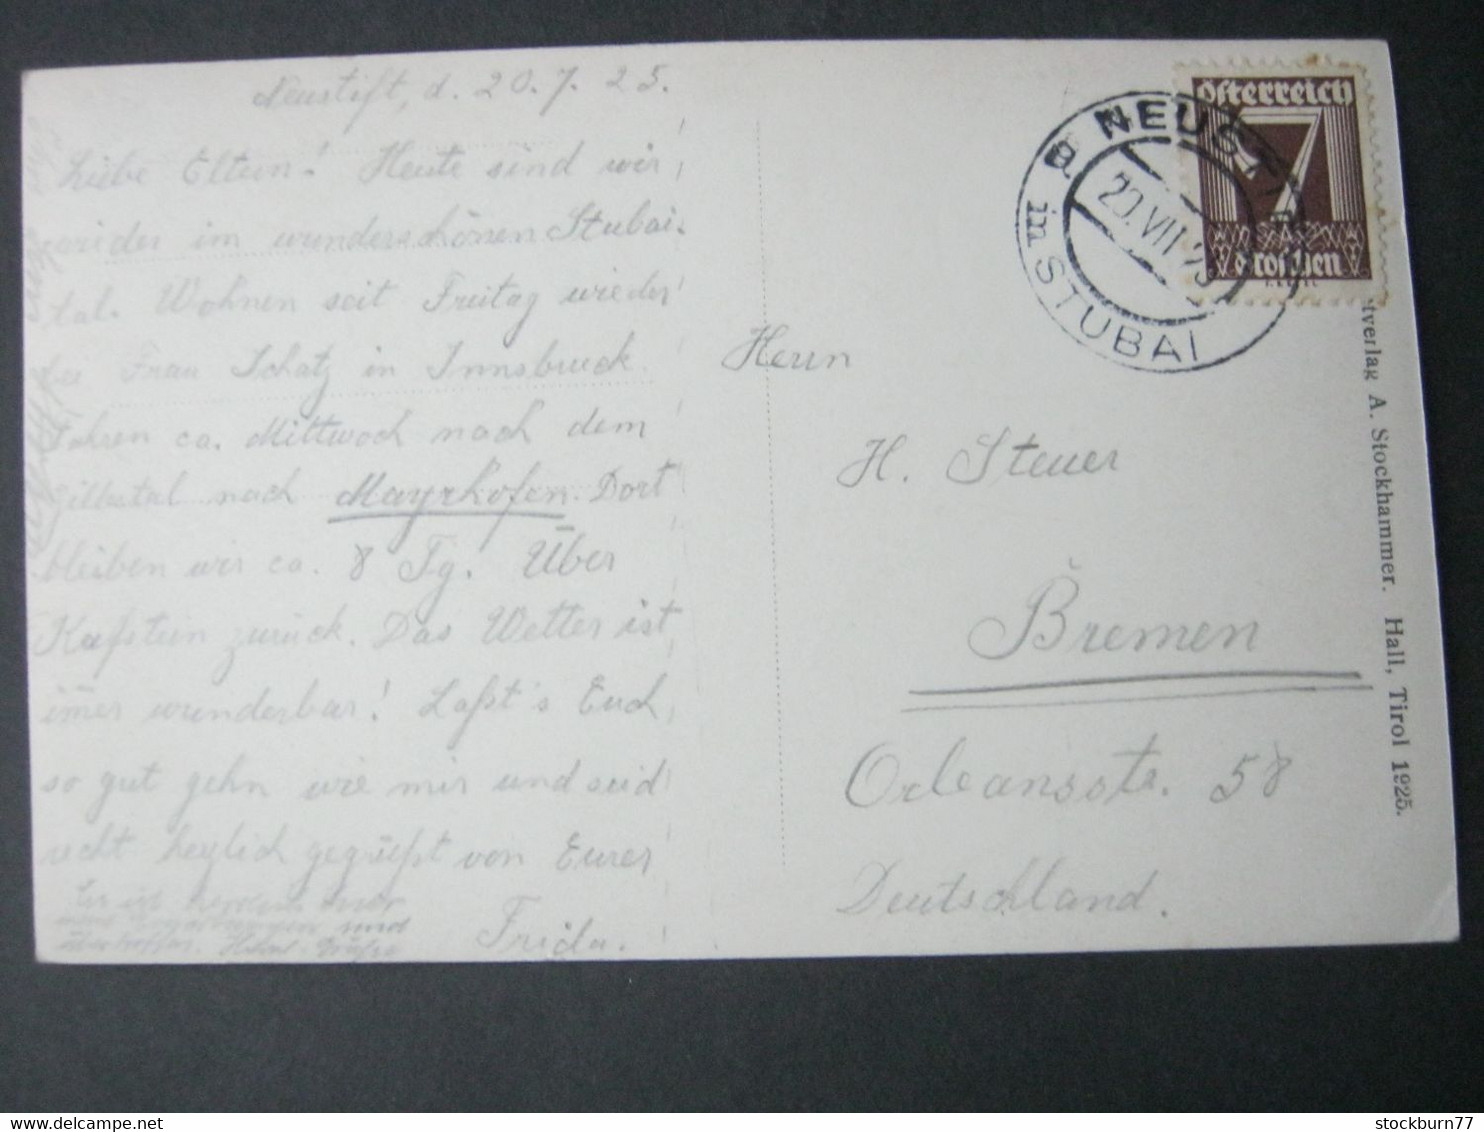 Neustift, d. 20.7.25.
Liebe Eltern! Heute sind wir
wider im wunderschönen Stubai-
tal. Wohnen seit Freitag wieder
bei Frau Schatz in Innsbruck
Fahren ca. Mittwoch nach dem
Zillertal nach Mayrhofen. Dort
bleiben wir ca. 8 Tg. Über
Kufstein zurück. Das Wetter ist
im̄er wunderbar! Laßt's Euch
so gut gehn wie mir und seid
recht herzlich gegrüßt von Eurer
Frida.
und
Herrn
H. Steuer
Bremen
Orleansstr. 58
Deutschland.
Österreich
7
Groschen
NEUSTIFT
in STUBAI
a
20.VII.25
tverlag A. Stockhammer. Hall, Tirol 1925.
stockburn77